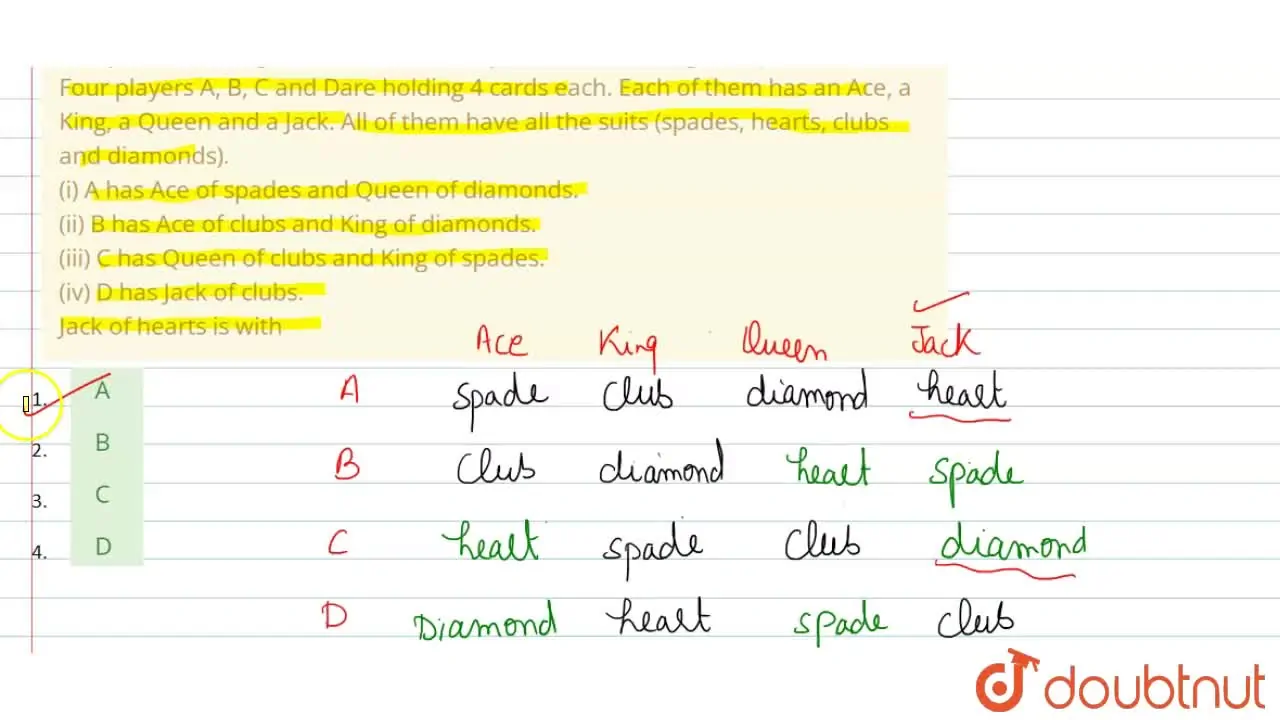 Four players A, B, C and Dare holding 4 cards each. Each of them has an Ace, a
King, a Queen and a Jack. All of them have all the suits (spades, hearts, clubs
and diamonds).
(i) A has Ace of spades and Queen of diamonds.
(ii) B has Ace of clubs and King of diamonds.
(iii) C has Queen of clubs and King of spades.
(iv) D has Jack of clubs.
Jack of hearts is with
Ace King Queen Jack
1. A
A spade club diamond heart
2. B
B club diamond heart spade
3. C
C heart spade club diamond
4. D
D Diamond heart spade club
doubtnut